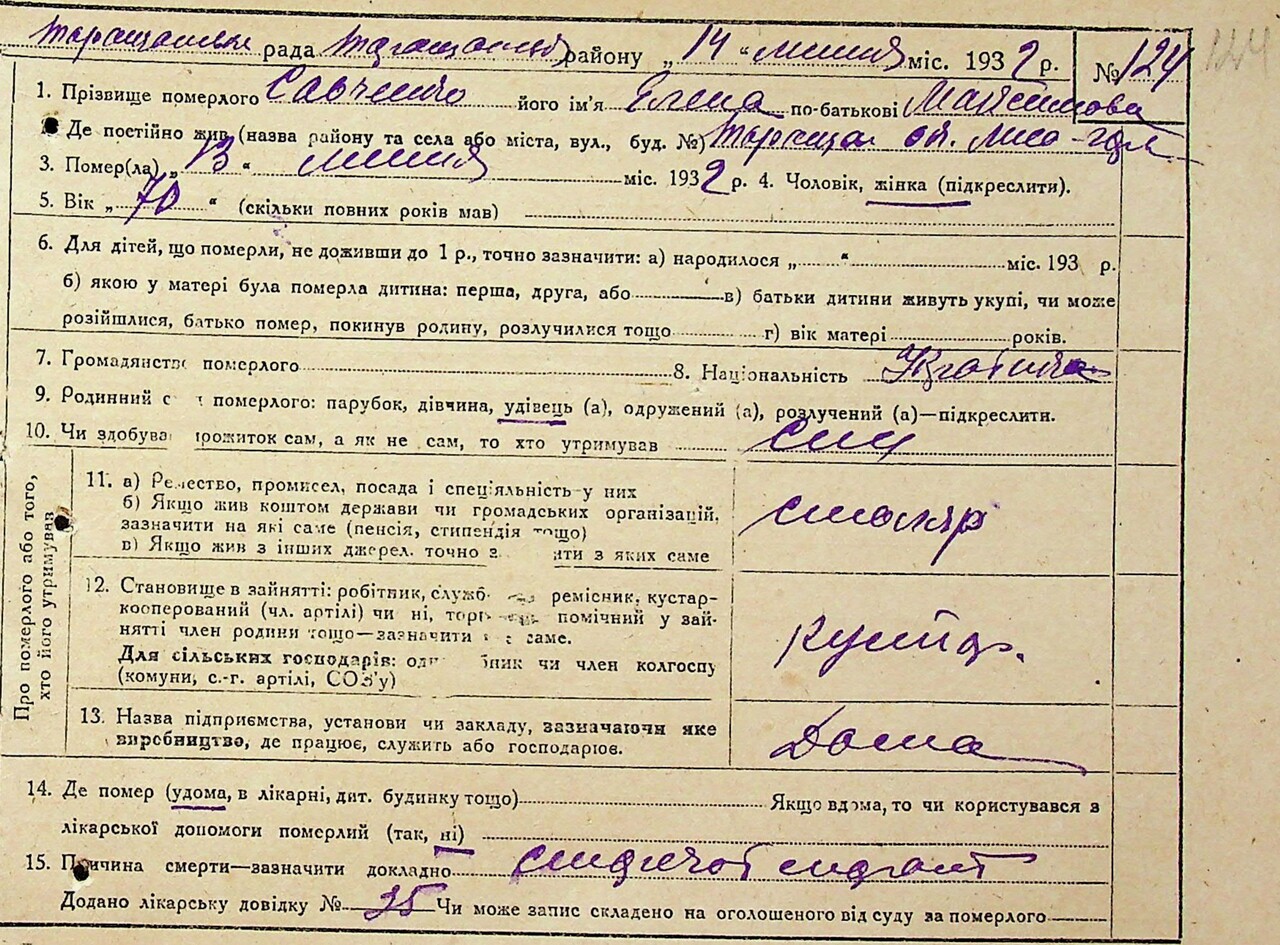 Таращанська рада Таращанськ району „14 “ липня міс. 1932 р. №124 124
1. Прізвище померлого Савченко його ім'я Елена по-батькові Максимова
2. Де постійно жив (назва району та села або міста, вул., буд. №) Тараща
3. Помер(ла) „13“ липня міс. 1932 р. 4. Чоловік, жінка (підкреслити).
5. Вік „70“ (скільки повних років мав)
6. Для дітей, що померли, не доживши до 1 р., точно зазначити: а) народилося „ “ міс. 193 р.
б) якою у матері була померла дитина: перша, друга, або в) батьки дитини живуть укупі, чи може
розійшлися, батько помер, покинув родину, розлучилися тощо г) вік матері років.
7. Громадянство померлого 8. Національність Українка
9. Родинний с померлого: парубок, дівчина, удівець (а), одружений (а), розлучений (а)—підкреслити.
10. Чи здобува прожиток сам, а як не сам, то хто утримував син
Про померлого або того,
хто його утримував
11. а) Ремество, промисел, посада і спеціяльність у них
б) Якщо жив коштом держави чи громадських організацій,
зазначити на які саме (пенсія, стипендія тощо)
в) Якщо жив з інших джерел, точно з ити з яких саме
столяр
12. Становище в зайнятті: робітник, служб ремісник, кустар-
кооперований (чл. артілі) чи ні, торг помічний у зай-
нятті член родини тощо—зазначити саме.
Для сільських господарів: од бник чи член колгоспу
(комуни, с.-г. артілі, СОЗ'у)
кустар.
13. Назва підприємства, установи чи закладу, зазначаючи яке
виробництво, де працює, служить або господарює.
Дома
14. Де помер (удома, в лікарні, дит. будинку тощо) Якщо вдома, то чи користувався з
лікарської допомоги померлий (так, ні)
15. Причина смерти—зазначити докладно
Додано лікарську довідку № 35 Чи може запис складено на оголошеного від суду за померлого